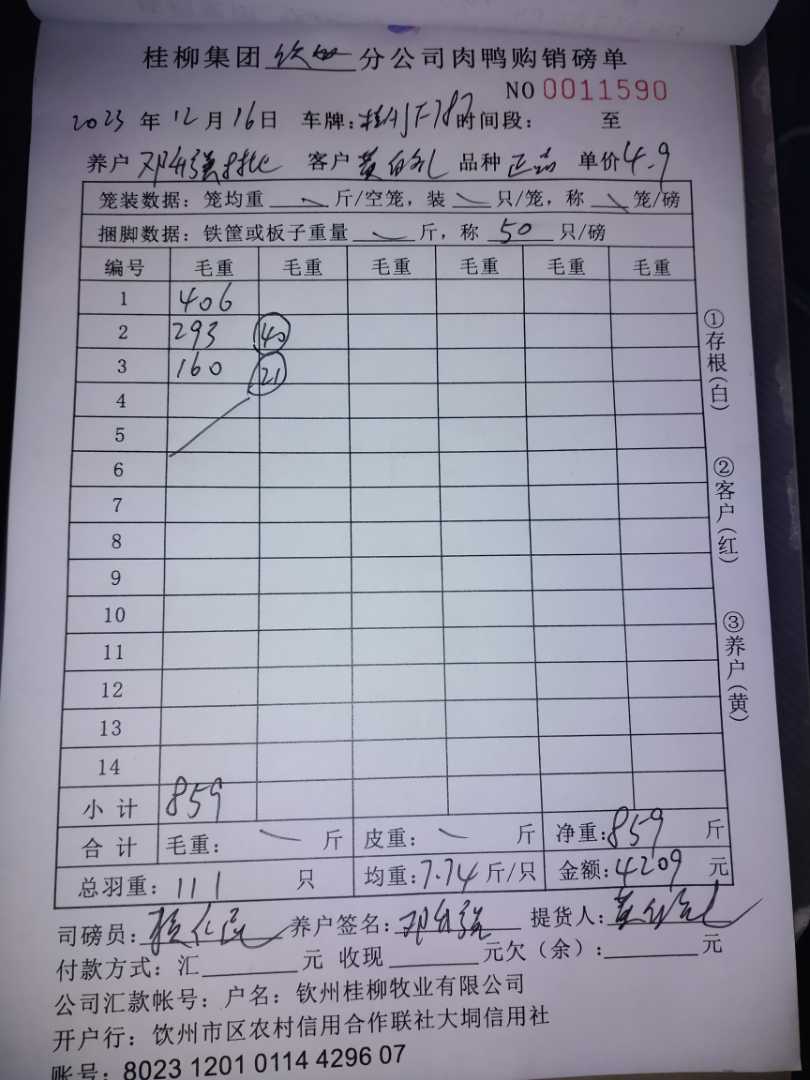 桂柳集团 钦州 分公司肉鸭购销磅单
NO 0011590
2023 年 12 月 16 日 车牌: 时间段: 至
养户 客户 品种 正品 单价 4.9
笼装数据: 笼均重 斤/空笼, 装 只/笼, 称 笼/磅
捆脚数据: 铁筐或板子重量 斤, 称 50 只/磅
编号 毛重 毛重 毛重 毛重 毛重 毛重
1 406
2 293 40
3 160 21
4
5
6
7
8
9
10
11
12
13
14
小计 859
合计 毛重: 斤 皮重: 斤 净重: 859 斤
总羽重: 111 只 均重: 7.74 斤/只 金额: 4209 元
司磅员: 养户签名: 提货人:
付款方式: 汇 元 收现 元欠(余): 元
公司汇款帐号: 户名: 钦州桂柳牧业有限公司
开户行: 钦州市区农村信用合作联社大垌信用社
账号: 8023 1201 0114 4296 07
①存根(白)
②客户(红)
③养户(黄)